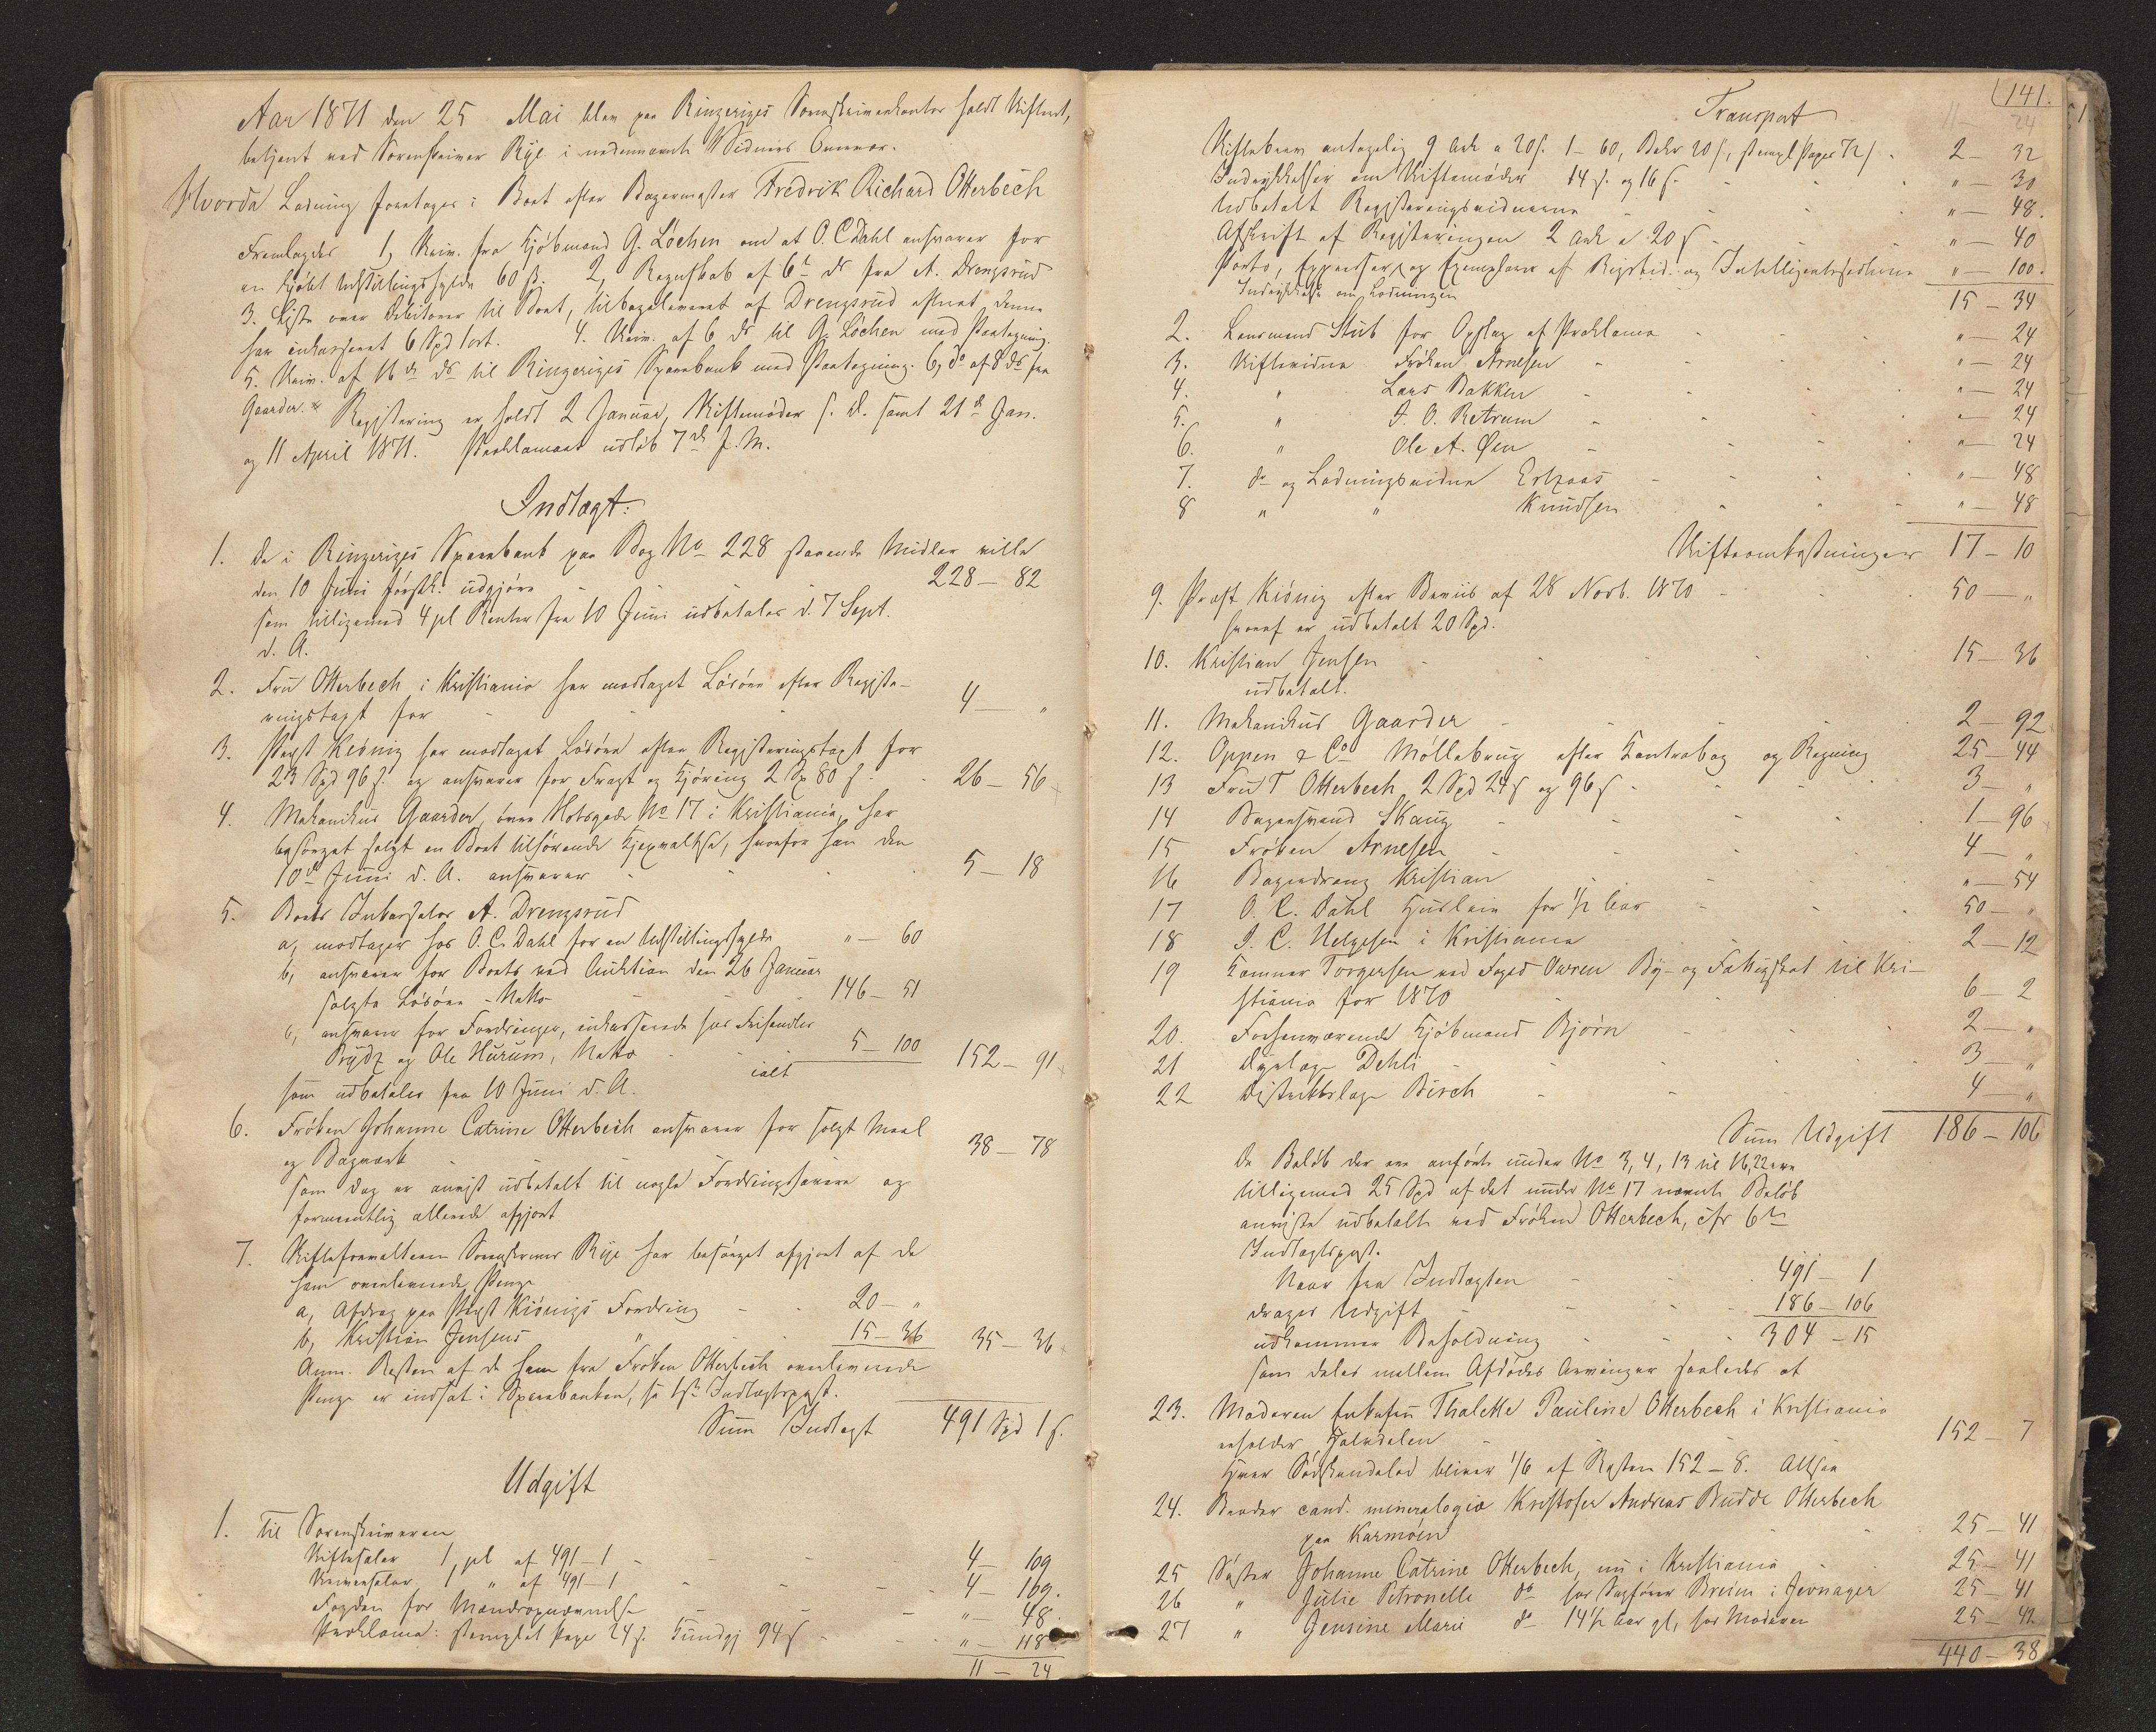 Aar 1871 den 25 Mai blev paa Ringeriges Sorenskriverkontor holdt Skifteret,
betjent ved Sorenskriver Rye i nedennævnte Vidners Overvær.
Hvorda Lodning foretoges i Boet efter Bagermester Fredrik Richard Otterbech
Fremlagdes 1, Skriv. fra Kjøbmand G. Løchen om at O. C. Dahl ansvarer for
en kjøbt Udstillingshylde 60 ß. 2, Regnskab af 6te ds fra A. Drengsrud
3. Liste over Debitorer til Boet, tilbageleveret af Drengsrud efterat denne
har inkasseret 6 Spd 1 ort. 4. Skriv. af 6 ds til G. Løchen med Paategning.
5. Skriv. af 16de ds til Ringeriges Sparebank med Paategning. 6, do af 8 ds fra
Gaarder. Registrering er holdt 2 Januar, Skiftemøder s. D. samt 21de Jan.
og 11 April 1871. Proklamaet udløb 7de f. M.
Indtægt:
1. De i Ringeriges Sparebank paa Bog No 228 staaende Midler ville
den 10 Juni førstk. udgjøre - 228 - 82
som tilligemed 4 pCt Renter fra 10 Juni udbetales d. 7 Sept.
d. A.
2. Fru Otterbech i Kristiania har modtaget Løsøre efter Registe-
ringstaxt for - 4 - "
3. Præst Kiönig har modtaget Løsøre efter Registeringstaxt for
23 Spd 96 ß. og ansvarer for Fragt og Kjøring 2 Sp 80 ß - 26 - 56
4. Mekanikus Gaarder, øvre Slotsgade No 17 i Kristiania, har
besørget solgt en Boet tilhørende Kjexvaltse, hvorfor han den
10de Juni d. A. ansvarer - 5 - 18
5. Boets Inkassator A. Drengsrud
a, modtager hos O. C. Dahl for en Udstillingshylde " - 60
b, ansvarer for Boets ved Auktion den 26 Januar
solgte Løsøre - Netto - 146 - 51
c, ansvarer for Fordringer, inkasserede hos
og Ole Hurum, Netto - 5 - 100
ialt 152 - 91
som udbetales fra 10 Juni d. A.
6. Frøken Johanne Catrine Otterbech ansvarer for solgt Meel
og Bagværk - 38 - 78
som dog er anvist udbetalt til nogle Fordringshavere og
formentlig allerede afgjort
7. Skifteforvalteren Sorenskriver Rye har besørget afgjort af de
ham overleverede Penge
a, Afdrag paa Præst Kiönigs Fordring - 20 - "
b, Kristian Jensens " - 15 - 36 35 - 36
Anm. Resten af de ham fra Frøken Otterbech overleverede
Penge er indsat i Sparebanken, se 1ste Indtægtspost.
Sum Indtægt 491 Spd 1 ß.
Udgift
1. Til Sorenskriveren
Skiftesalær 1 pCt af 491 - 1 - 4 - 109
Skriversalær 1 " af 491 - 1 - 4 - 109.
Fogden for Mændsopnævnelse - " - 48.
Proklama: stemplet Papir 24 ß. Kundgj 94 ß - " - 118
11 - 24
141.
Transport 11 - 24
Skiftebrev antagelig 9 Ark a 20 ß. 1 - 60, Bekr 20 ß, stempl. Papir 72 ß - 2 - 32
Indrykkelser om Skiftemøder 14 ß. og 16 ß. - " - 30
Udbetalt Registeringsvidnerne - " - 48.
Afskrift af Registeringen 2 Ark a 20 ß - " - 40
Porto, og Exemplarer af Rigstid. og Intelligentssedlerne " - 100.
Indrykkelse om Lodningen
15 - 34
2. Lensmand Stub for Opslag af Proklama - " - 24
3. Skiftevidne Frøken Arnesen - " - 24
4. " Lars Bakken - " - 24
5. " J. O. Retrum - " - 24
6. " Ole A. Øen - " - 24
7. do og Lodningsvidne - " - 48
8 " " Knudsen - " - 48
Skifteomkostninger 17 - 10
9. Præst Kiönig efter Beviis af 28 Novb. 1870 - 50 - "
hvoraf er udbetalt 20 Spd.
10. Kristian Jensen - 15 - 36
udbetalt.
11. Mekanikus Gaarder - 2 - 92
12. Oppen & Co Møllebrug efter Kontrabog og Regning 25 - 44
13 Fru T Otterbech 2 Spd 24 ß og 96 ß - 3 - "
14 Bagersvend Skaug - 1 - 96
15 Frøken Arnesen - 4 - "
16 Bagerdreng Kristian - " - 54
17 O. C. Dahl Husleie for 1/2 Aar - 50 - "
18 J. C. Helgesen i Kristiania - 2 - 12
19 Kemner Torgersen ved Foged Owren By- og Fattigskat til Kri-
stiania for 1870 - 6 - 2
20. Forhenværende Kjøbmand Bjørn - 2 - "
21 Dyrlæge Dehli - 3 - "
22 Distriktslæge Birch - 4 - "
Sum Udgift 186 - 106
De Beløb der ere anførte under No 3, 4, 13 til 16, 22 ere
tilligemed 25 Spd af det under No 17 nævnte Beløb
anviste udbetalt ved Frøken Otterbech, cfr 6te
Indtægtspost.
Naar fra Indtægten - 491 - 1
drages Udgift - 186 - 106
udkommer Beholdning - 304 - 15
som deles mellem Afdødes Arvinger saaledes at
23. Moderen Enkefru Thalette Pauline Otterbech i Kristiania
erholder Halvdelen - 152 - 7
Hver Søskendelod bliver 1/6 af Resten 152 - 8. Altsaa
24. Broder cand. mineralogiæ Kristofer Andreas Budde Otterbech
paa Karmøen - 25 - 41
25 Søster Johanne Catrine Otterbech, nu i Kristiania - 25 - 41
26 " Julie Petronelle do hos Sagfører Breien i Jevnager 25 - 41
27 " Jensine Marie do 14 1/2 Aar gl, hos Moderen 25 - 42
440 - 38